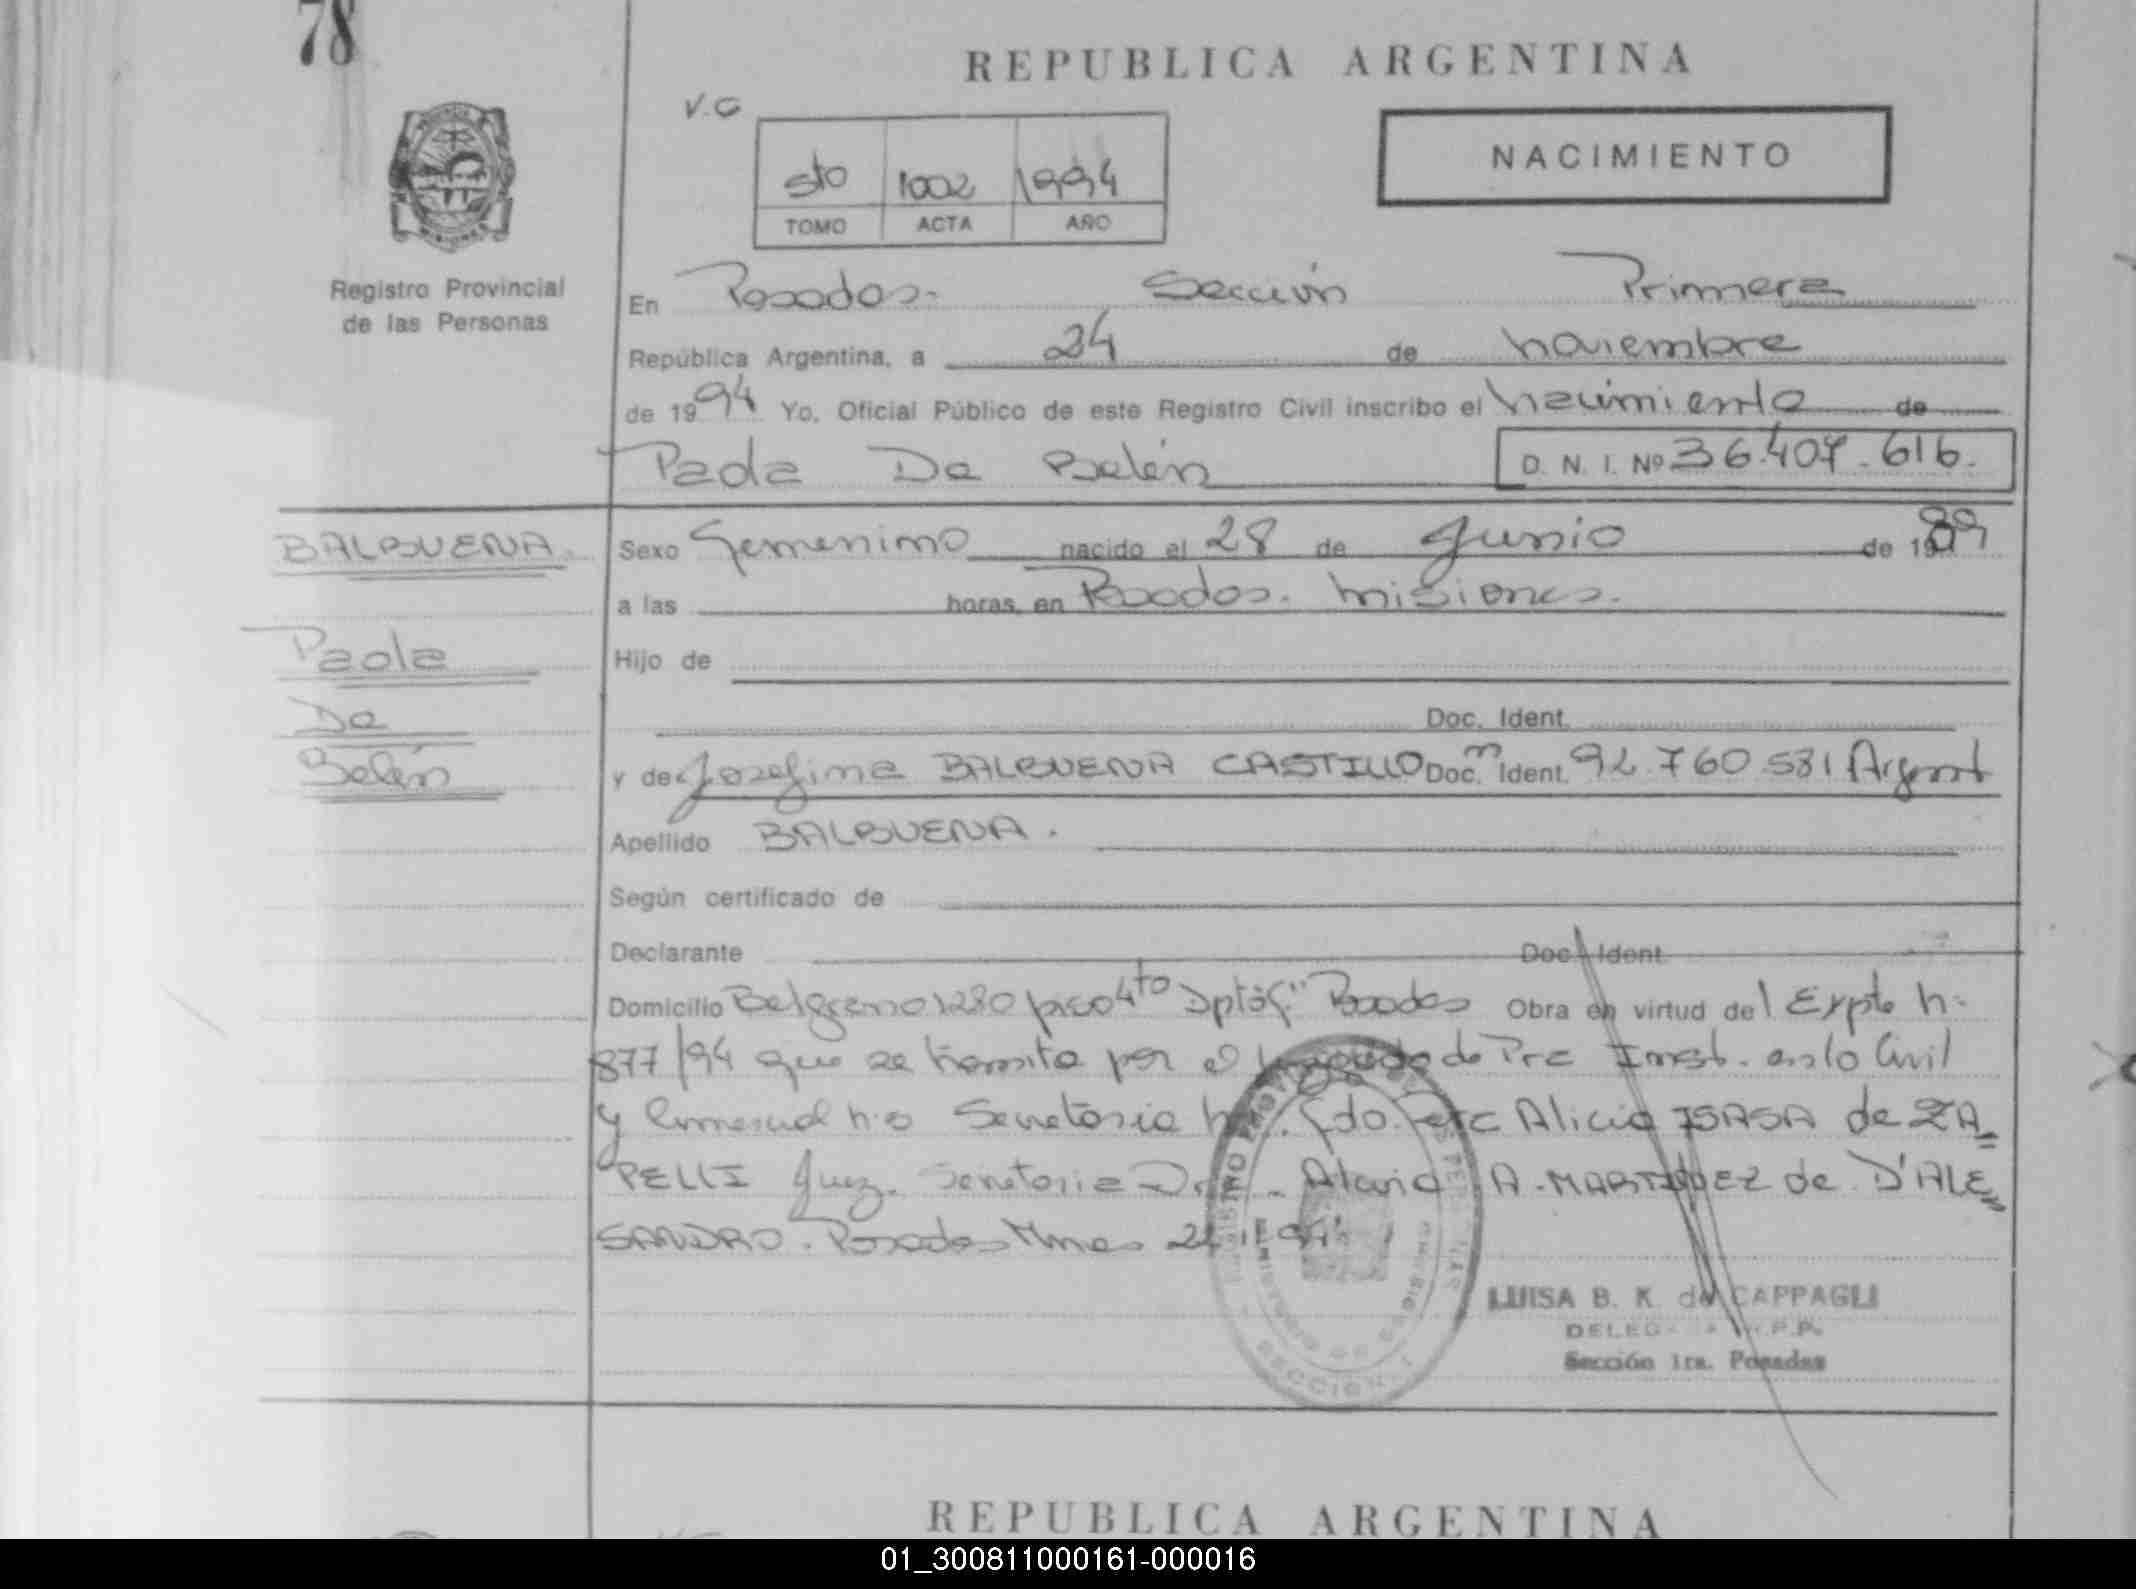 78
REPUBLICA ARGENTINA
V.C
5to 1002 1994
TOMO ACTA AÑO
NACIMIENTO
Registro Provincial
de las Personas
En Posadas. Sección Primera
República Argentina, a 24 de noviembre
de 1994 Yo, Oficial Público de este Registro Civil inscribo el nacimiento de
Paola De Belén D. N. I. Nº 36.407.616.
BALBUENA.
Paola
De
Belén
Sexo femenino nacido el 28 de Junio de 1989
a las horas, en Posadas. Misiones.
Hijo de
Doc. Ident.
y de Josefina BALBUENA CASTILLO Doc. Ident. 92.760.531 Argent
Apellido BALBUENA.
Según certificado de
Declarante Doc. Ident.
Domicilio Belgrano 1280 piso 4to Dpto Posadas Obra en virtud del Expte n:
877/94 que se tramita por el Juzgado de Pra Inst. en lo Civil
y Comercial Secretaria Fdo. Alicia ISASA de ZA=
PELLI Juez. Secretaria A. MARTINEZ de D'ALE=
SANDRO. Posadas Mnes
LUISA B. K. de CAPPAGLI
Sección 1ra. Posadas
REPUBLICA ARGENTINA
01_300811000161-000016